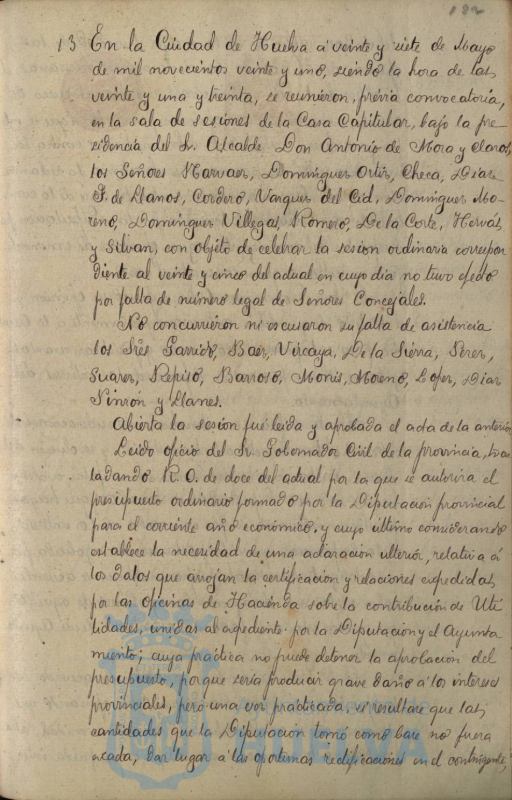 122
13 En la Ciudad de Huelva á veinte y siete de Mayo
de mil novecientos veinte y uno, siendo la hora de las
veinte y una y treinta, se reunieron, prévia convocatoria,
en la sala de sesiones de la Casa Capitular, bajo la pre-
sidencia del Sr. Alcalde Don Antonio de Mora y Claros,
los Señores Narvaez, Dominguez Ortiz, Checa, Diaz
F. de Llanos, Cordero, Vazquez del Cid, Dominguez Mo-
reno, Dominguez Villegas, Romero, De la Corte, Hervás,
y Silvan, con objeto de celebrar la sesion ordinaria correspon-
diente al veinte y cinco del actual en cuyo dia no tuvo efecto
por falta de número legal de Señores Concejales.
No concurrieron ni escusaron su falta de asistencia
los Srēs Garrido, Baez, Vizcaya, De la Sierra, Perez,
Suarez, Repiso, Barroso, Monis, Moreno, Lopez, Diaz
Pinzon y Llanes.
Abierta la sesion fué leida y aprobada el acta de la anterior
Leido oficio del Sr. Gobernador Civil de la provincia, tras
ladando R. O. de doce del actual por la que se autoriza el
presupuesto ordinario formado por la Diputación provincial
para el corriente año económico, y cuyo último considerando
establece la necesidad de una aclaración ulterior, relativa á
los datos que arrojan la certificación y relaciones expedidas
por las oficinas de Hacienda sobre la contribución de Uti
lidades, unidas al expediente por la Diputacion y el Ayunta
miento; cuya práctica no puede detener la aprobacion del
presupuesto, porque sería producir grave daño á los intereses
provinciales, pero una vez practicada, si resultare que las
cantidades que la Diputacion tomó como base no fuera
exacta, dar lugar á las oportunas rectificaciones en el contingente,
HUELVA